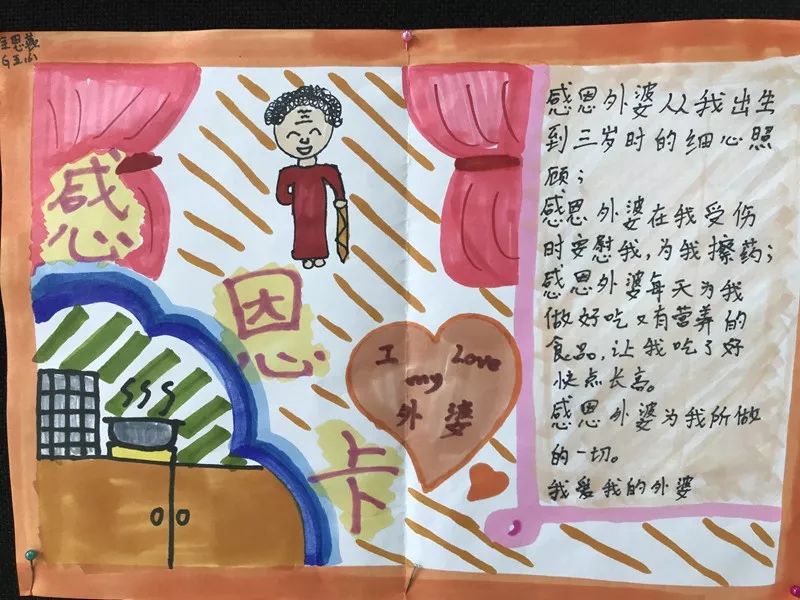 王思薇
G五(4)
感
恩
卡
I Love
my
外婆
感恩外婆从我出生
到三岁时的细心照
顾；
感恩外婆在我受伤
时安慰我,为我擦药；
感恩外婆每天为我
做好吃又有营养的
食品。让我吃了好
快点长高。
感恩外婆为我所做
的一切。
我爱我的外婆